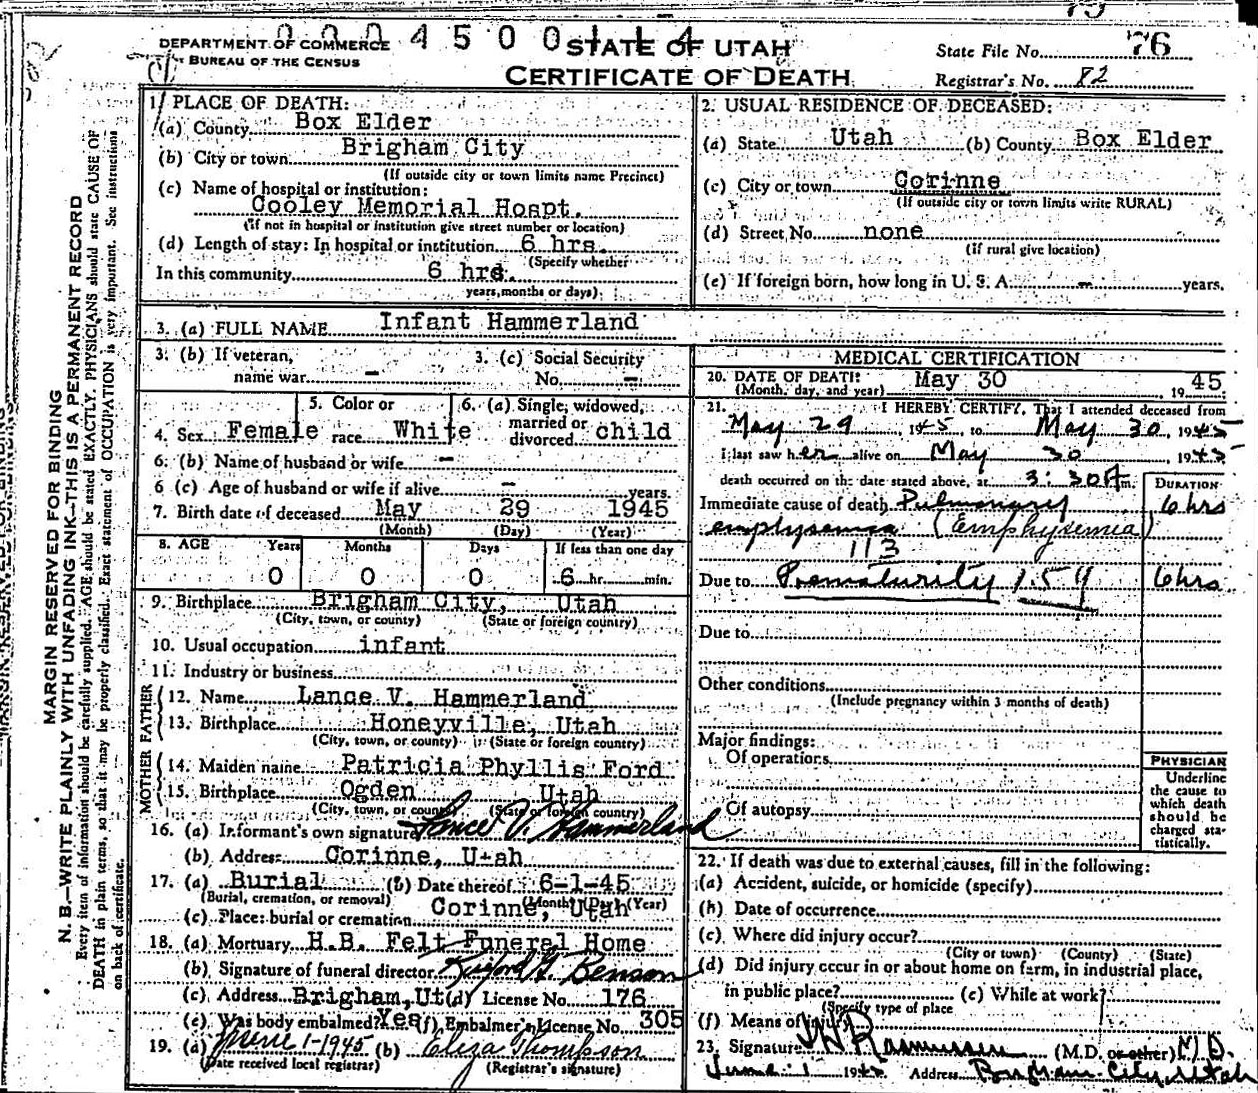 DEPARTMENT OF COMMERCE
BUREAU OF THE CENSUS
0004500114
STATE OF UTAH
CERTIFICATE OF DEATH
State File No. 76
Registrar's No. 82
MARGIN RESERVED FOR BINDING
N. B.—WRITE PLAINLY WITH UNFADING INK—THIS IS A PERMANENT RECORD
Every item of information should be carefully supplied. AGE should be stated EXACTLY. PHYSICIANS should state CAUSE OF
DEATH in plain terms, so that it may be properly classified. Exact statement of OCCUPATION is very important. See instructions
on back of certificate.
1. PLACE OF DEATH:
(a) County Box Elder
(b) City or town Brigham City
(If outside city or town limits name Precinct)
(c) Name of hospital or institution:
Cooley Memorial Hospt.
(If not in hospital or institution give street number or location)
(d) Length of stay: In hospital or institution 6 hrs.
(Specify whether
In this community 6 hrs.
years, months or days)
2. USUAL RESIDENCE OF DECEASED:
(a) State Utah (b) County Box Elder
(c) City or town Corinne
(If outside city or town limits write RURAL)
(d) Street No. none
(if rural give location)
(e) If foreign born, how long in U. S. A. — years.
3. (a) FULL NAME Infant Hammerland
3. (b) If veteran, name war —
3. (c) Social Security No. —
4. Sex Female
5. Color or race White
6. (a) Single, widowed, married or divorced child
6. (b) Name of husband or wife —
6 (c) Age of husband or wife if alive — years.
7. Birth date of deceased May 29 1945
(Month) (Day) (Year)
8. AGE Years Months Days If less than one day
0 0 0 6 hr. min.
9. Birthplace Brigham City, Utah
(City, town, or county) (State or foreign country)
10. Usual occupation infant
11. Industry or business
FATHER
12. Name Lance V. Hammerland
13. Birthplace Honeyville, Utah
(City, town, or county) (State or foreign country)
MOTHER
14. Maiden name Patricia Phyllis Ford
15. Birthplace Ogden Utah
(City, town, or county) (State or foreign country)
16. (a) Informant's own signature Lance V. Hammerland
(b) Address Corinne, Utah
17. (a) Burial (b) Date thereof 6-1-45
(Burial, cremation, or removal) (Month) (Day) (Year)
(c) Place: burial or cremation Corinne, Utah
18. (a) Mortuary H.B. Felt Funeral Home
(b) Signature of funeral director Benson
(c) Address Brigham, Ut (d) License No. 176
(e) Was body embalmed? Yes (f) Embalmer's License No. 305
19. (a) June 1-1945 (b) Eliza Thompson
(Date received local registrar) (Registrar's signature)
MEDICAL CERTIFICATION
20. DATE OF DEATH: May 30, 1945
(Month, day, and year)
21. I HEREBY CERTIFY, That I attended deceased from
May 29, 1945, to May 30, 1945
I last saw her alive on May 30, 1945
death occurred on the date stated above, at 3:30A m.
DURATION
Immediate cause of death Pulmonary 6 hrs
emphysemia (Emphysemia)
113
Due to Prematurity 159 6 hrs
Due to
Other conditions
(Include pregnancy within 3 months of death)
Major findings:
Of operations
Of autopsy
PHYSICIAN
Underline
the cause to
which death
should be
charged sta-
tistically.
22. If death was due to external causes, fill in the following:
(a) Accident, suicide, or homicide (specify)
(b) Date of occurrence
(c) Where did injury occur?
(City or town) (County) (State)
(d) Did injury occur in or about home on farm, in industrial place,
in public place? (e) While at work?
(Specify type of place
(f) Means of injury
23. Signature Rasmussen (M.D. or other) M.D.
June 1 1945 Address Brigham City, Utah